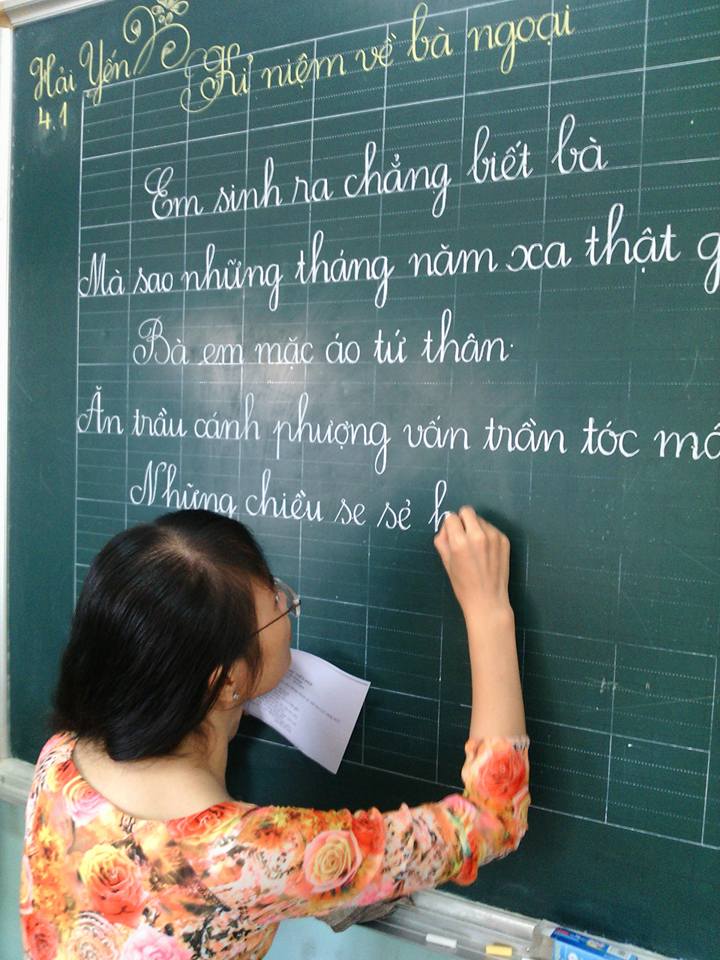 Hải Yến
4.1
Kỉ niệm về bà ngoại
Em sinh ra chẳng biết bà
Mà sao những tháng năm xa thật g
Bà em mặc áo tứ thân.
Ăn trầu cánh phượng vấn trần tóc mâ
Những chiều se sẻ h